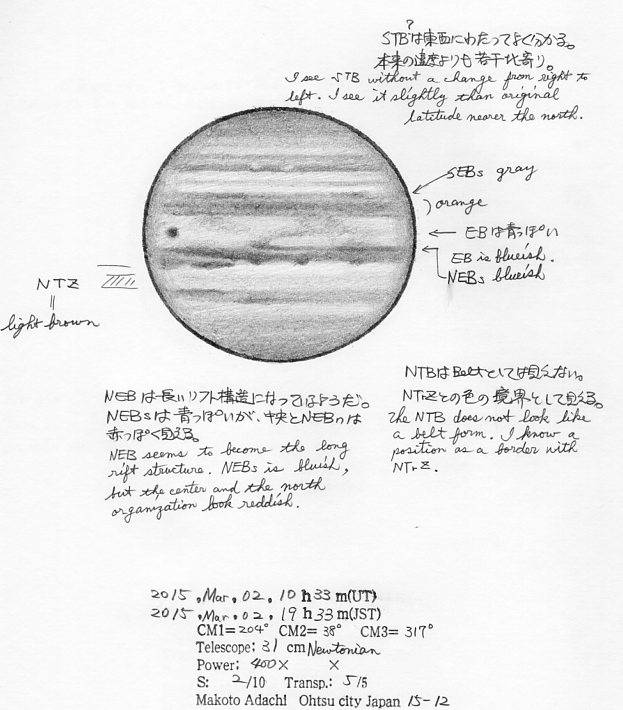 ?
STBは東西にわたってよく分かる。
本来の緯度よりも若干北寄り。
I see STB without a change from right to
left. I see it slightly than original
latitude nearer the north.
SEBs gray
orange
EBは青っぽい
EB is blueish.
NEBs blueish
NTZ
||
light brown
NEBは長いリフト構造になってはようだ。
NEBsは青っぽいが、中央とNEBnは
赤っぽく見える。
NEB seems to become the long
rift structure. NEBs is bluish,
but the center and the north
organization look reddish.
NTBはBeltとしては見えない。
NTrZとの色の境界として見える。
The NTB does not look like
a belt form. I know a
position as a border with
NTrZ.
2015, Mar, 02, 10 h 33 m(UT)
2015, Mar, 02, 19 h 33 m(JST)
CM1= 204° CM2= 38° CM3= 317°
Telescope: 31 cm Newtonian
Power: 400× ×
S: 2/10 Transp.: 5/5
Makoto Adachi Ohtsu city Japan 15-12